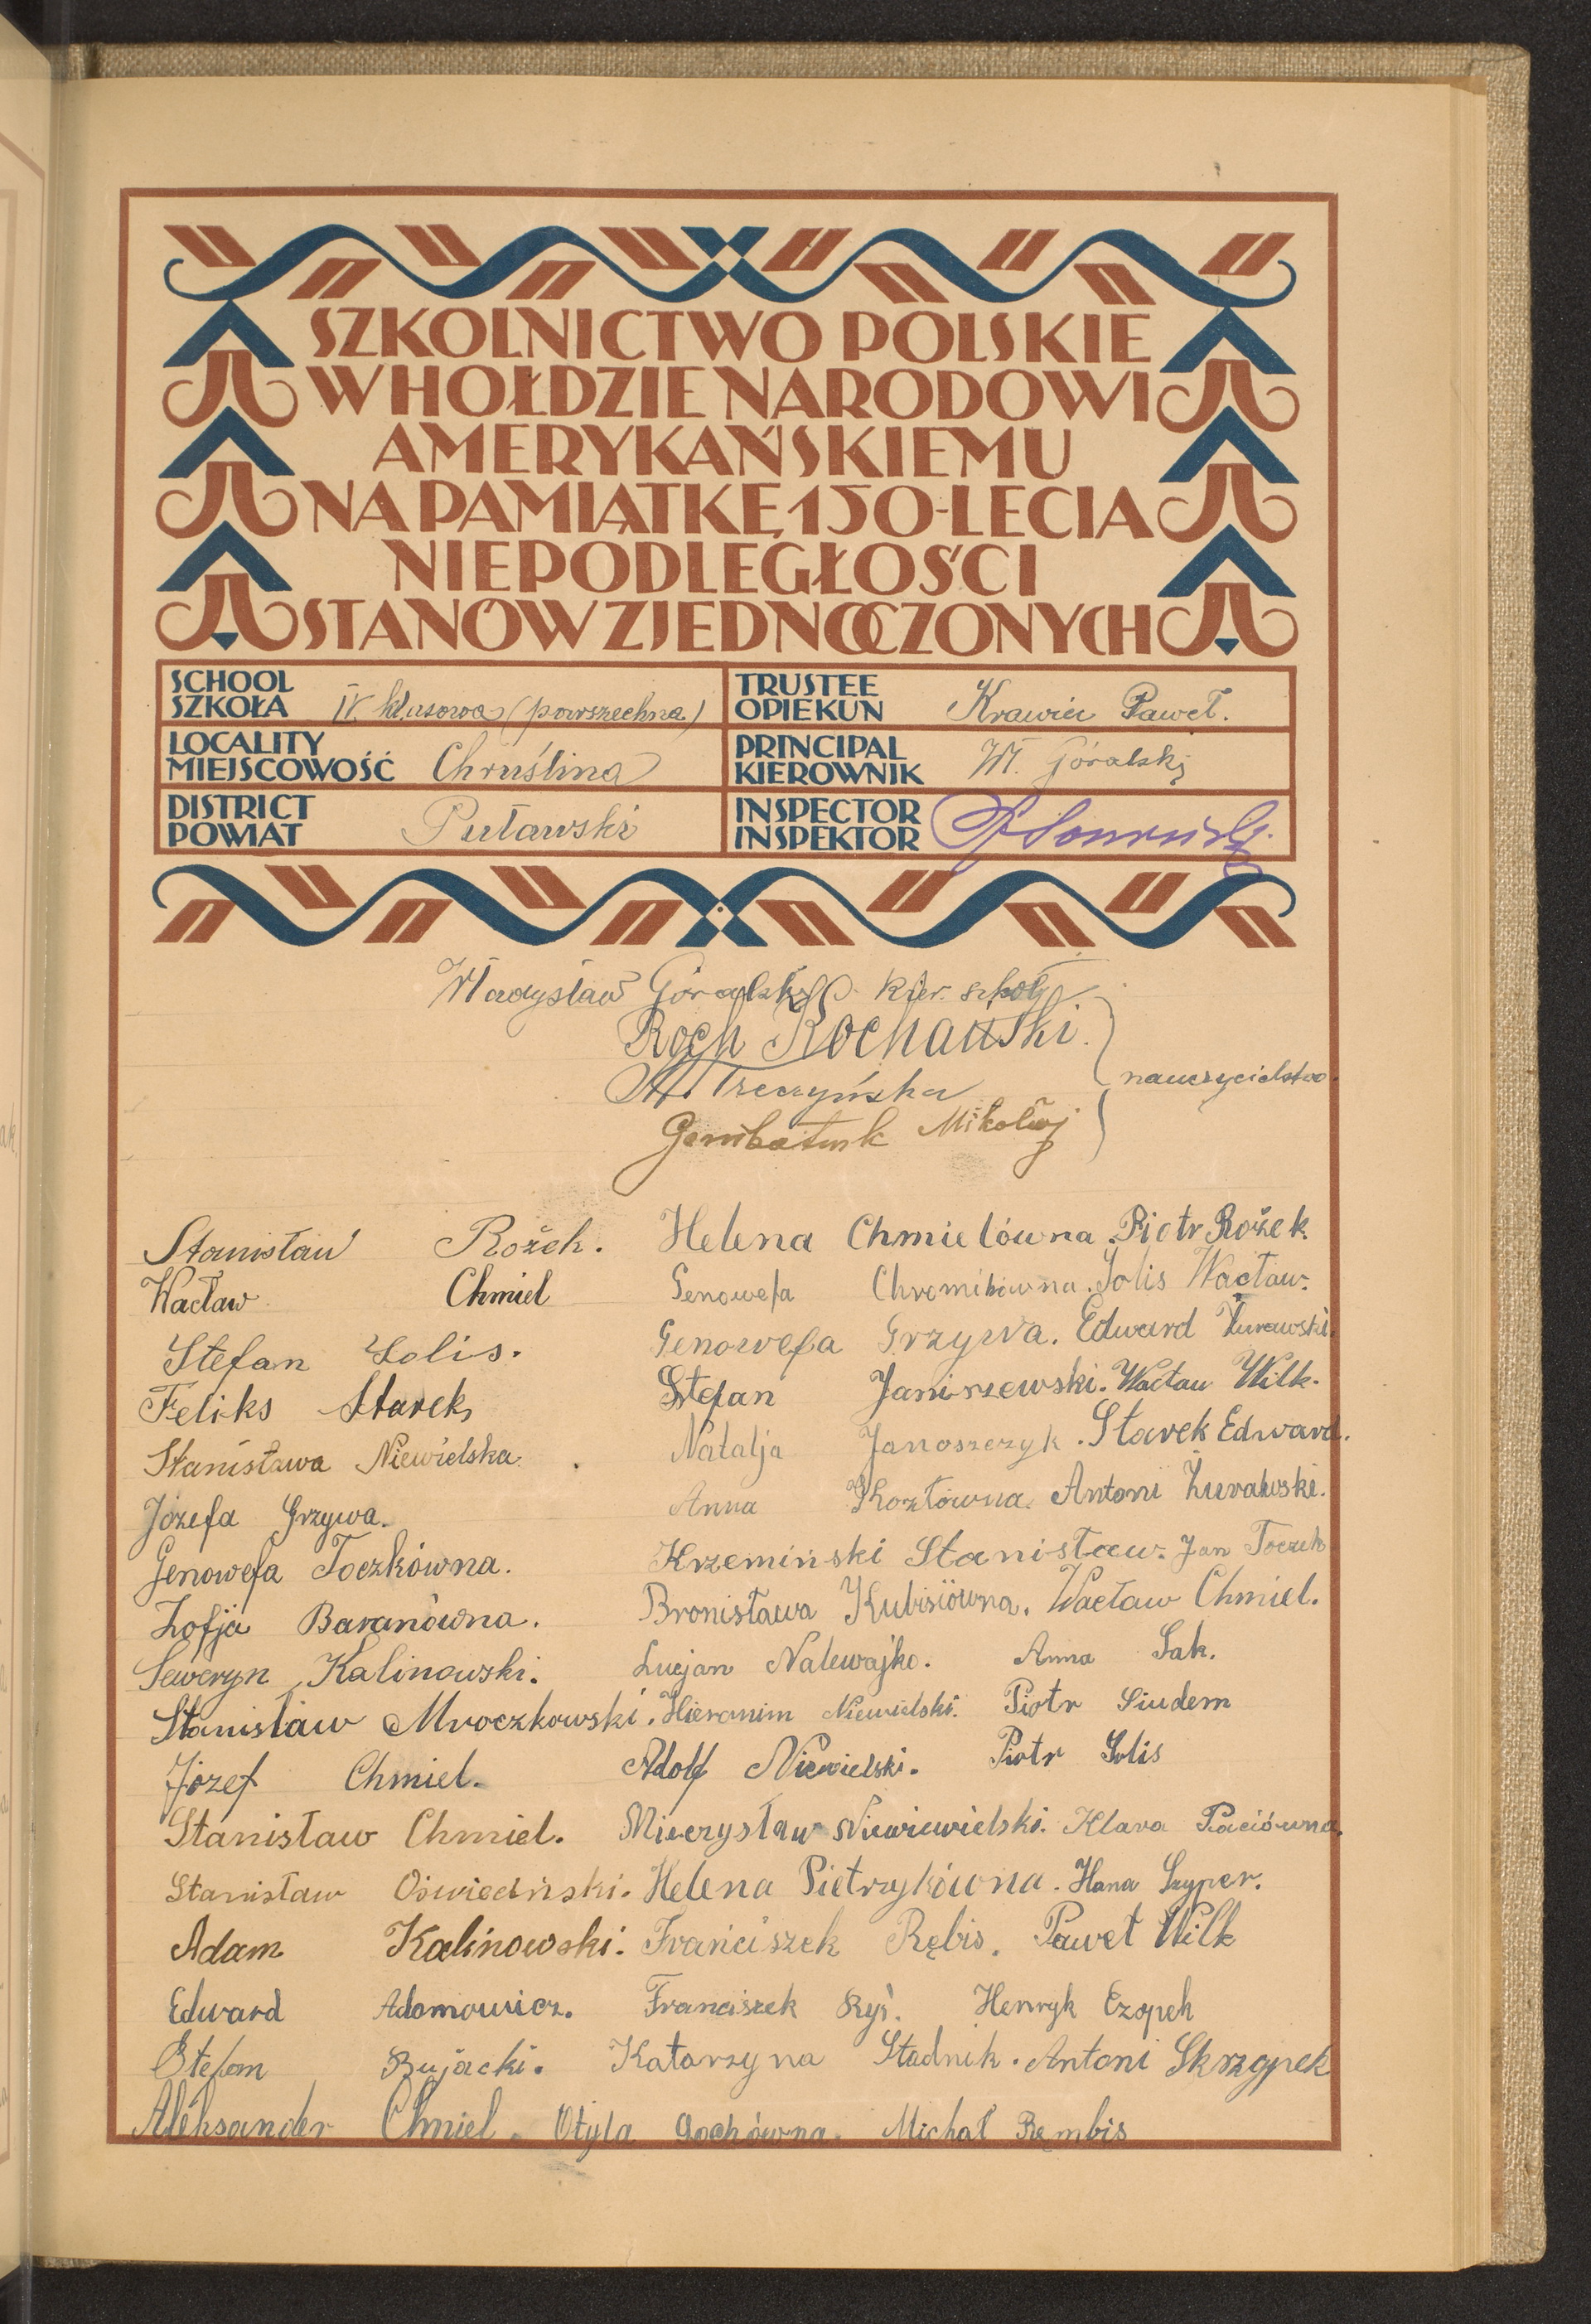 SZKOLNICTWO POLSKIE
W HOŁDZIE NARODOWI
AMERYKAŃSKIEMU
NA PAMIĄTKĘ 150-LECIA
NIEPODLEGŁOŚCI
STANÓW ZJEDNOCZONYCH
SCHOOL
SZKOŁA IV klasowa (powszechna)
TRUSTEE
OPIEKUN Krawiec Paweł.
LOCALITY
MIEJSCOWOŚĆ Chruślina
PRINCIPAL
KIEROWNIK Wł. Góralski
DISTRICT
POWIAT Puławski
INSPECTOR
INSPEKTOR
Władysław Góralski p. kier. szkoły
Roch Kochański.
Trzeczyńska
nauczycielstwo.
Gembatiuk Mikołaj
Stanisław Rożek. Helena Chmielówna. Piotr Rożek.
Wacław Chmiel Genowefa Chromikówna. Solis Wacław.
Stefan Solis. Genowefa Grzywa. Edward Żurawski.
Feliks Starek Stefan Janiszewski. Wacław Wilk.
Stanisława Niewielska. Natalja Janoszczyk. Starek Edward.
Józefa Grzywa. Anna Kozłówna. Antoni Żurawski.
Genowefa Toczkówna. Krzemiński Stanisław. Jan Toczek
Zofja Baranówna. Bronisława Kubisiówna. Wacław Chmiel.
Seweryn Kalinowski. Lucjan Nalewajko. Anna Sak.
Stanisław Mroczkowski. Hieronim Niewielski. Piotr Siudem
Józef Chmiel. Adolf Niewielski. Piotr Solis
Stanisław Chmiel. Mieczysław Niewiewielski. Klara Paciówna.
Stanisław Helena Pietrzykówna. Hana Szyper.
Adam Kalinowski. Franciszek Rębis. Paweł Wilk
Edward Adamowicz. Franciszek Ryś. Henryk Czopek
Stefan Bujacki. Katarzyna Stadnik. Antoni Skrzypek
Aleksander Chmiel. Otyla Gochówna. Michał Rembis